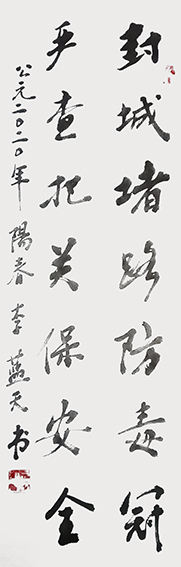 封城堵路防毒冠
严查把关保安全
公元二〇二〇年陽春李蓝天书